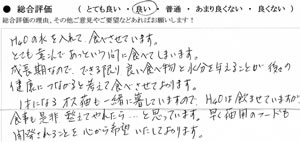 ● 総合評価 （ とても良い ・ 良い ・ 普通 ・ あまり良くない ・ 良くない ）
総合評価の理由、その他ご意見やご要望などあればお願いします！
H4Oの水を入れて食べさせています。
とても喜んであっという間に食べてしまいます。
成長期なので、できる限り良い食べ物と水分を与えることが後々の
健康につながると考えて食べさせております。
1才になるオス猫も一緒に暮していますので、H4Oは飲ませていますが
食事も是非整えてやれたら…と思っています。早く猫用のフードも
開発されることを心から希望いたしております。